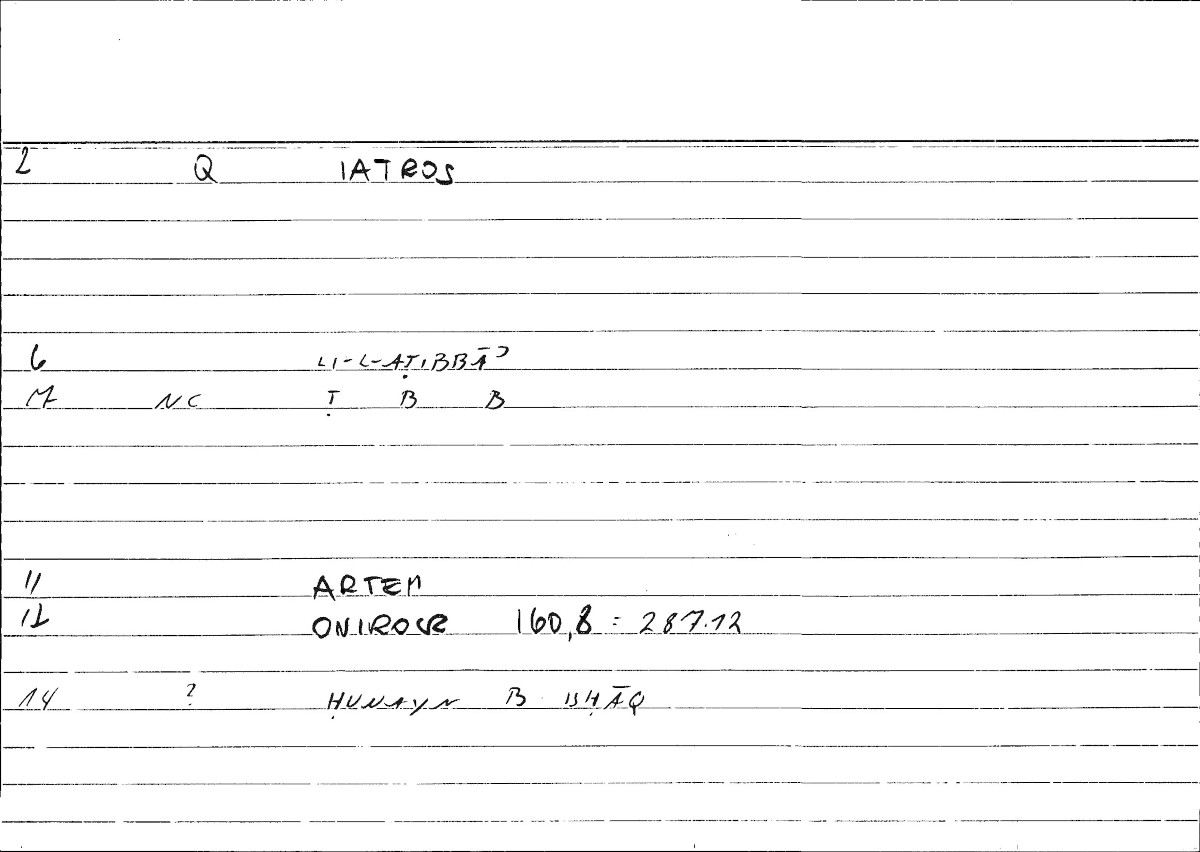 2 Q IATROS
6 LI-L-AṬIBBĀʾ
7 NC Ṭ B B
11 ARTEM
12 ONIROCR 160,8 = 287.12
14 ? ḤUNAYN B. ISḤĀQ